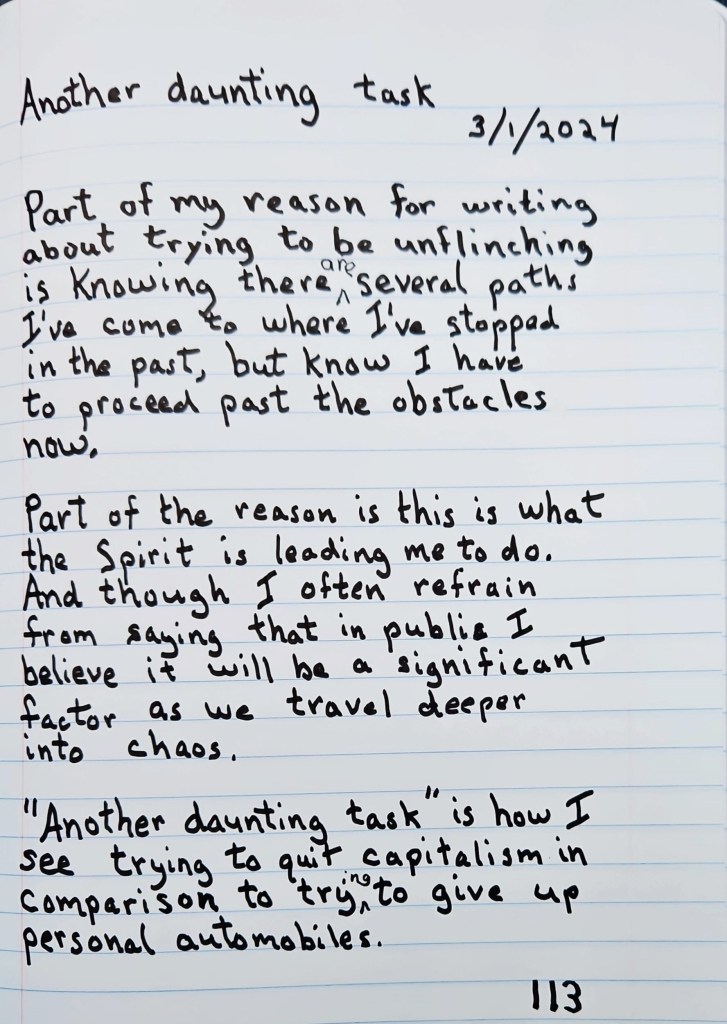 Another daunting task
3/1/2024
Part of my reason for writing
about trying to be unflinching
is knowing there are several paths
I've come to where I've stopped
in the past, but know I have
to proceed past the obstacles
now.
Part of the reason is this is what
the Spirit is leading me to do.
And though I often refrain
from saying that in public I
believe it will be a significant
factor as we travel deeper
into chaos.
"Another daunting task" is how I
see trying to quit capitalism in
comparison to trying to give up
personal automobiles.
113